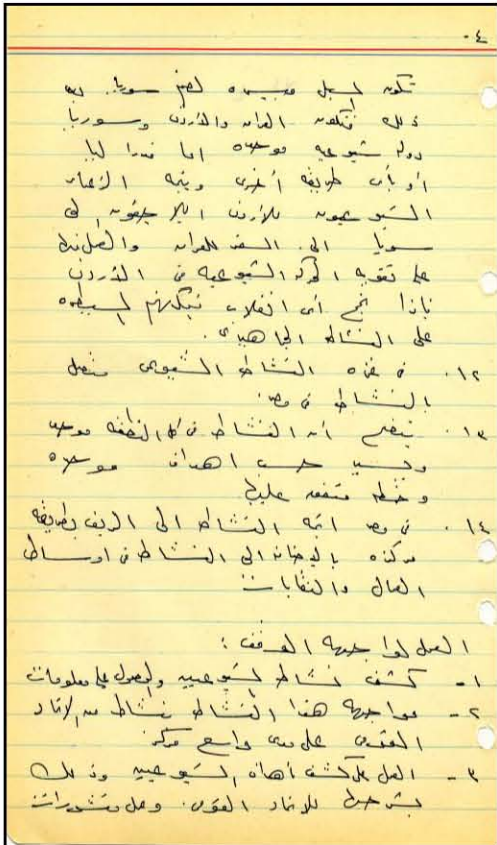 ٤-
تكون السبل ميسره لضم سوريا بعد
ذلك فتكون العراق والأردن وسوريا
دولة شيوعيه موحده اما فدراليا
أو بأى طريقه أخرى ويتجه الأعضاء
الشيوعيون للأردن اللاجئون إلى
سوريا إلى السفر للعراق والعمل فيها
على تقوية الحركه الشيوعيه فى الأردن
فإذا نجح أى انقلاب فيمكنهم السيطره
على النشاط الجماهيرى.
١٢. فى غزه النشاط الشيوعى متصل
النشاط فى مصر.
١٣. يتضح أن النشاط فى كل المنطقه موحد
ويسير حسب أهداف موحده
وخطه متفق عليها
١٤. فى مصر اتجه النشاط إلى الريف بطريقه
مركزه بالإضافه إلى النشاط فى أوساط
العمال والنقابات
العمل لمواجهة الموقف:
١- كشف نشاط الشيوعيين والحصول على معلومات
٢- مواجهة هذا النشاط بنشاط من الاتحاد
القومى على مدى واسع مركز
٣- العمل على كشف أهداف الشيوعيين وذلك
بشرحها للاتحاد القومى. وعمل منشورات